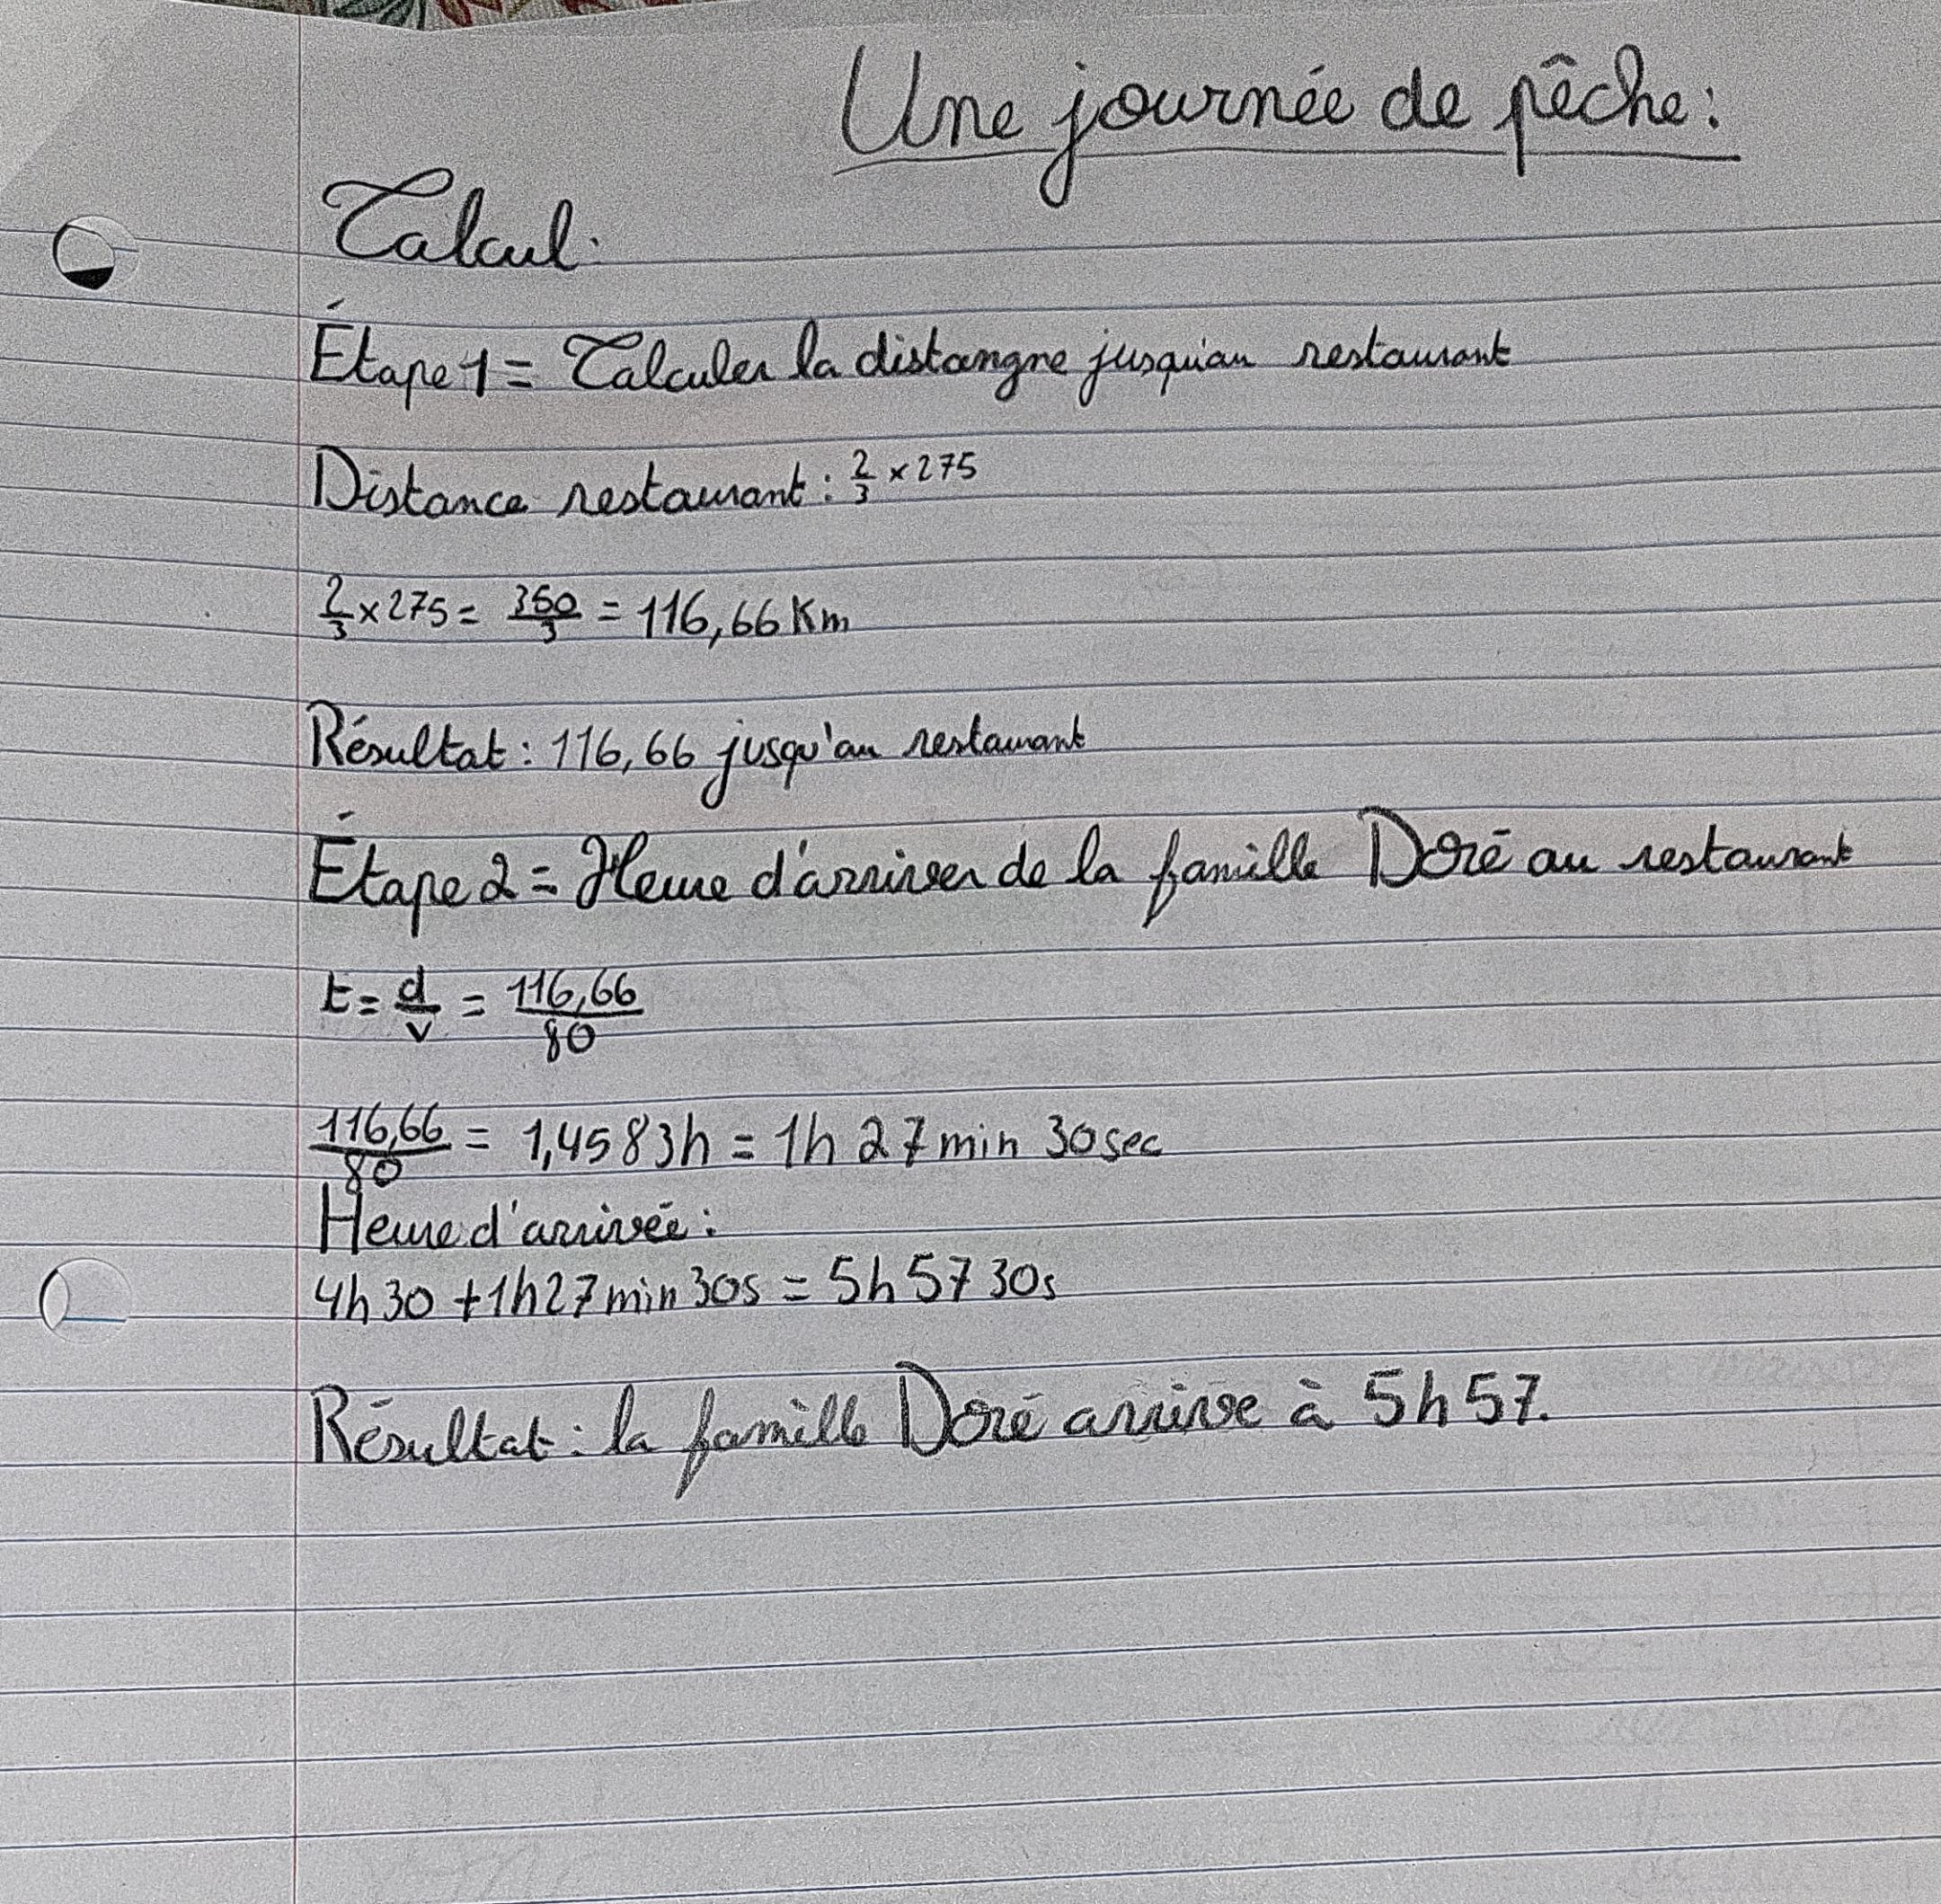 Une journée de pêche:
Calcul:
Étape 1 = Calculer la distangne jusqui'au restaurant
Distance restaurant: 2/3 × 275
2/3 × 275 = 350/3 = 116,66 Km
Résultat: 116,66 jusqu'au restaurant
Étape 2 = Heure d'arriver de la famille Doré au restaurant
t = d/v = 116,66/80
116,66/80 = 1,4583h = 1h 27min 30sec
Heure d'arrivée:
4h30 + 1h27min30s = 5h57 30s
Résultat: la famille Doré arrive à 5h57.